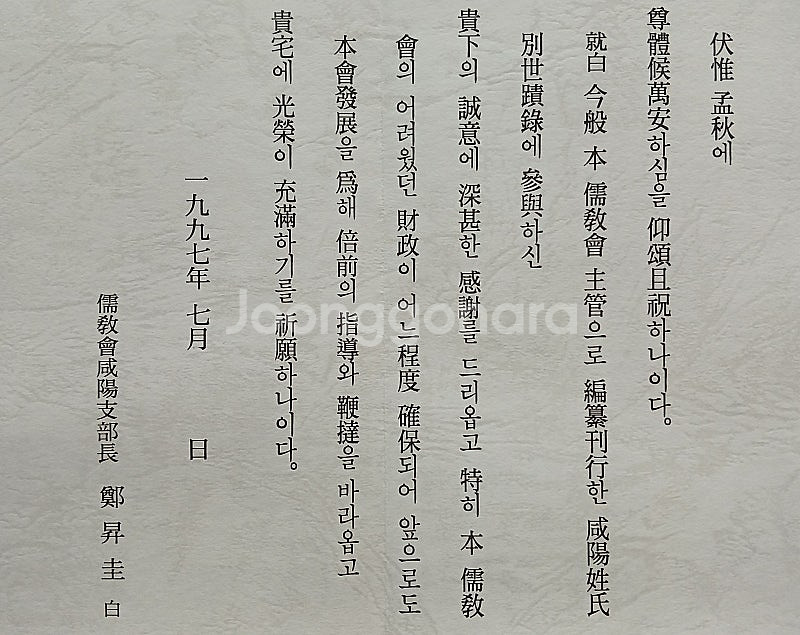 伏惟 孟秋에
尊體候萬安하심을 仰頌且祝하나이다。
就白 今般 本 儒敎會 主管으로 編纂刊行한 咸陽姓氏
別世蹟錄에 參與하신
貴下의 誠意에 深甚한 感謝를 드리옵고 特히 本 儒敎
會의 어려웠던 財政이 어느程度 確保되어 앞으로도
本會發展을 爲해 倍前의 指導와 鞭撻을 바라옵고
貴宅에 光榮이 充滿하기를 祈願하나이다。
一九九七年 七月 日
儒敎會咸陽支部長 鄭昇圭 白
Joonggonara